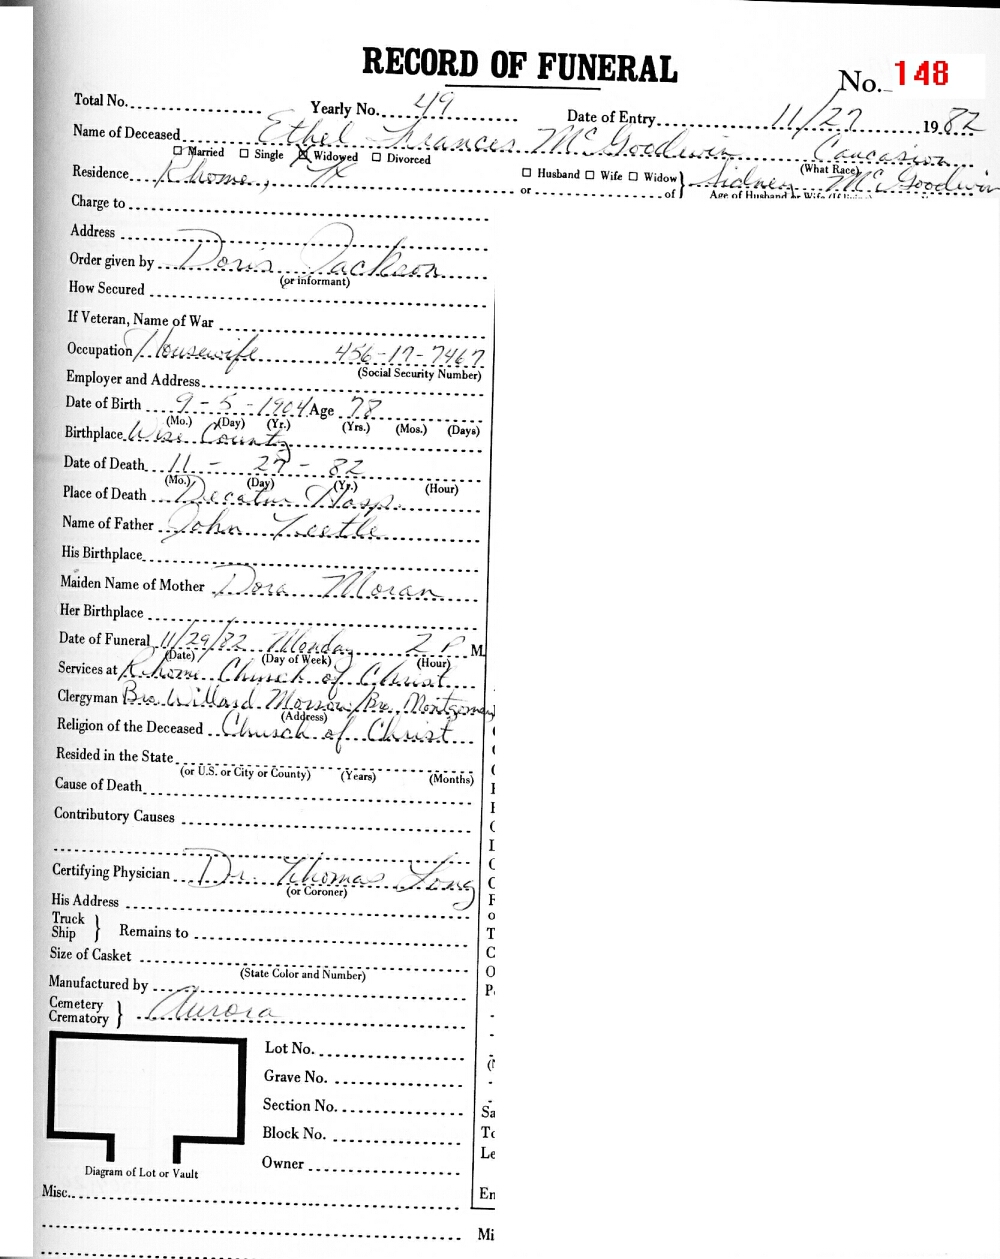 RECORD OF FUNERAL
No. 148
Total No. Yearly No. 49 Date of Entry 11/27 1982
Name of Deceased Ethel Frances McGoodwin Caucasion
☐ Married ☐ Single ☒ Widowed ☐ Divorced (What Race)
Residence Rhome, TX ☐ Husband ☐ Wife ☐ Widow } Sidney McGoodwin
or of Age of Husband or Wife (If living)
Charge to
Address
Order given by Doris Jackson
(or informant)
How Secured
If Veteran, Name of War
Occupation Housewife 456-17-7467
(Social Security Number)
Employer and Address
Date of Birth 9-5-1904 Age 78
(Mo.) (Day) (Yr.) (Yrs.) (Mos.) (Days)
Birthplace Wise County
Date of Death 11-27-82
(Mo.) (Day) (Yr.) (Hour)
Place of Death Decatur Hosp.
Name of Father John Teetle
His Birthplace
Maiden Name of Mother Dora Moran
Her Birthplace
Date of Funeral 11/29/82 Monday 2 P M.
(Date) (Day of Week) (Hour)
Services at Rhome Church of Christ
Clergyman Bro Willard Morrow/Bro. Montgomery
(Address)
Religion of the Deceased Church of Christ
Resided in the State
(or U.S. or City or County) (Years) (Months)
Cause of Death
Contributory Causes
Certifying Physician Dr. Thomas Long
(or Coroner)
His Address
Truck
Ship } Remains to
Size of Casket
(State Color and Number)
Manufactured by
Cemetery
Crematory } Aurora
Lot No.
Grave No.
Section No.
Block No.
Owner
Diagram of Lot or Vault
Misc.
Sa
To
Le
En
Mi